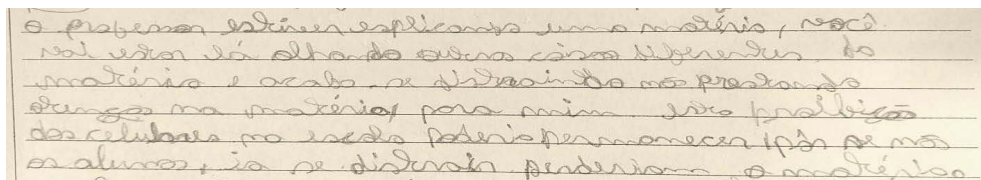 o professor estiver esplicando uma matéria, você
vai estar lá olhando outras coisas diferentes da
matéria e acaba se distraindo não prestando
atenção na matéria, para mim essa proibição
dos celulares na escola poderia permanecer, pós se não
os alunos, ia se distrair perderiam a matéria